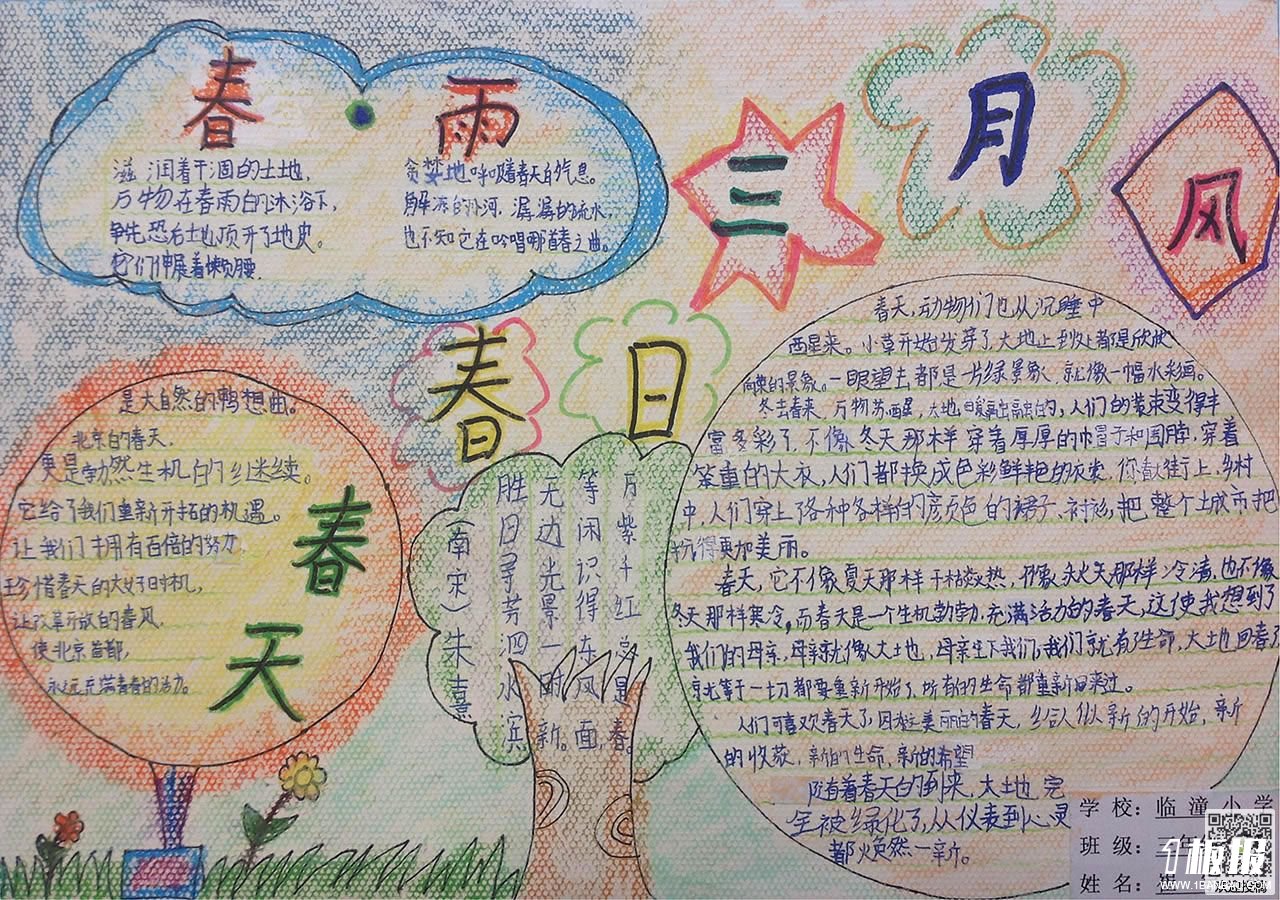 春·雨
滋润着干涸的土地,
万物在春雨的沐浴下,
争先恐后土地顶开了地皮。
它们伸展着懒腰.
贪婪地呼吸着春天的气息。
解冻的小河,潺潺的流水,
也不知它在吟唱哪首春之曲。
三月风
春日
胜日寻芳泗水滨
无边光景一时新。
等闲识得东风面,
万紫千红总是春。
(南宋)朱熹
春天
是大自然的畅想曲。
北京的春天,
更是勃然生机的继续。
它给了我们重新开拓的机遇。
让我们拥有百倍的努力,
珍惜春天的大好时机,
让改革开放的春风,
使北京首都,
永远充满青春的活力。
春天,动物们也从沉睡中
西星来。小草开始发芽了大地上到处都是欣欣
向荣的景象。一眼望去都是一片绿景象,就像一幅水彩画。
冬去春来,万物苏西星,大地暖融融的,人们的装束变得丰
富多彩了,不像冬天那样穿着厚厚的巾帽子和围脖,穿着
笨重的大衣,人们都换成色彩鲜艳的衣裳,你看大街上,乡村
中,人们穿上了各种各样的颜色的裙子、衬衫,把整个城市把
扮得更加美丽。
春天,它不像夏天那样干枯炎热,不像秋天那样冷清,也不像
冬天那样寒冷,而春天是一个生机勃勃,充满活力的春天,这使我想到了
我们的母亲,母亲就像大土地,母亲生下我们,我们就有了生命,大土地回春,
就等于一切都要重新开始了,所有的生命都重新回来过。
人们可喜欢春天了,因为这美丽的春天,给人似新的开始,新
的收获,新的生命,新的希望
随着春天的到来,大地完
全被绿化了,从仪表到心灵
都焕然一新。
学校:临潼小学
班级:二年
姓名:
1板报
WWW.1BANBAO.COM